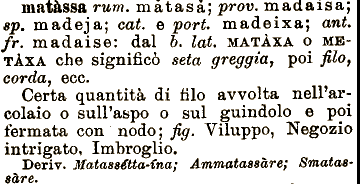 matàssa rum. mătasă; prov. madaisa;
sp. madeja; cat. e port. madeixa; ant.
fr. madaise: dal b. lat. MATÀXA O ME-
TÀXA che significò seta greggia, poi filo,
corda, ecc.
Certa quantità di filo avvolta nell'ar-
colaio o sull'aspo o sul guindolo e poi
fermata con nodo; fig. Viluppo, Negozio
intrigato, Imbroglio.
Deriv. Matassétta-ína; Ammatassàre; Smatas-
sàre.